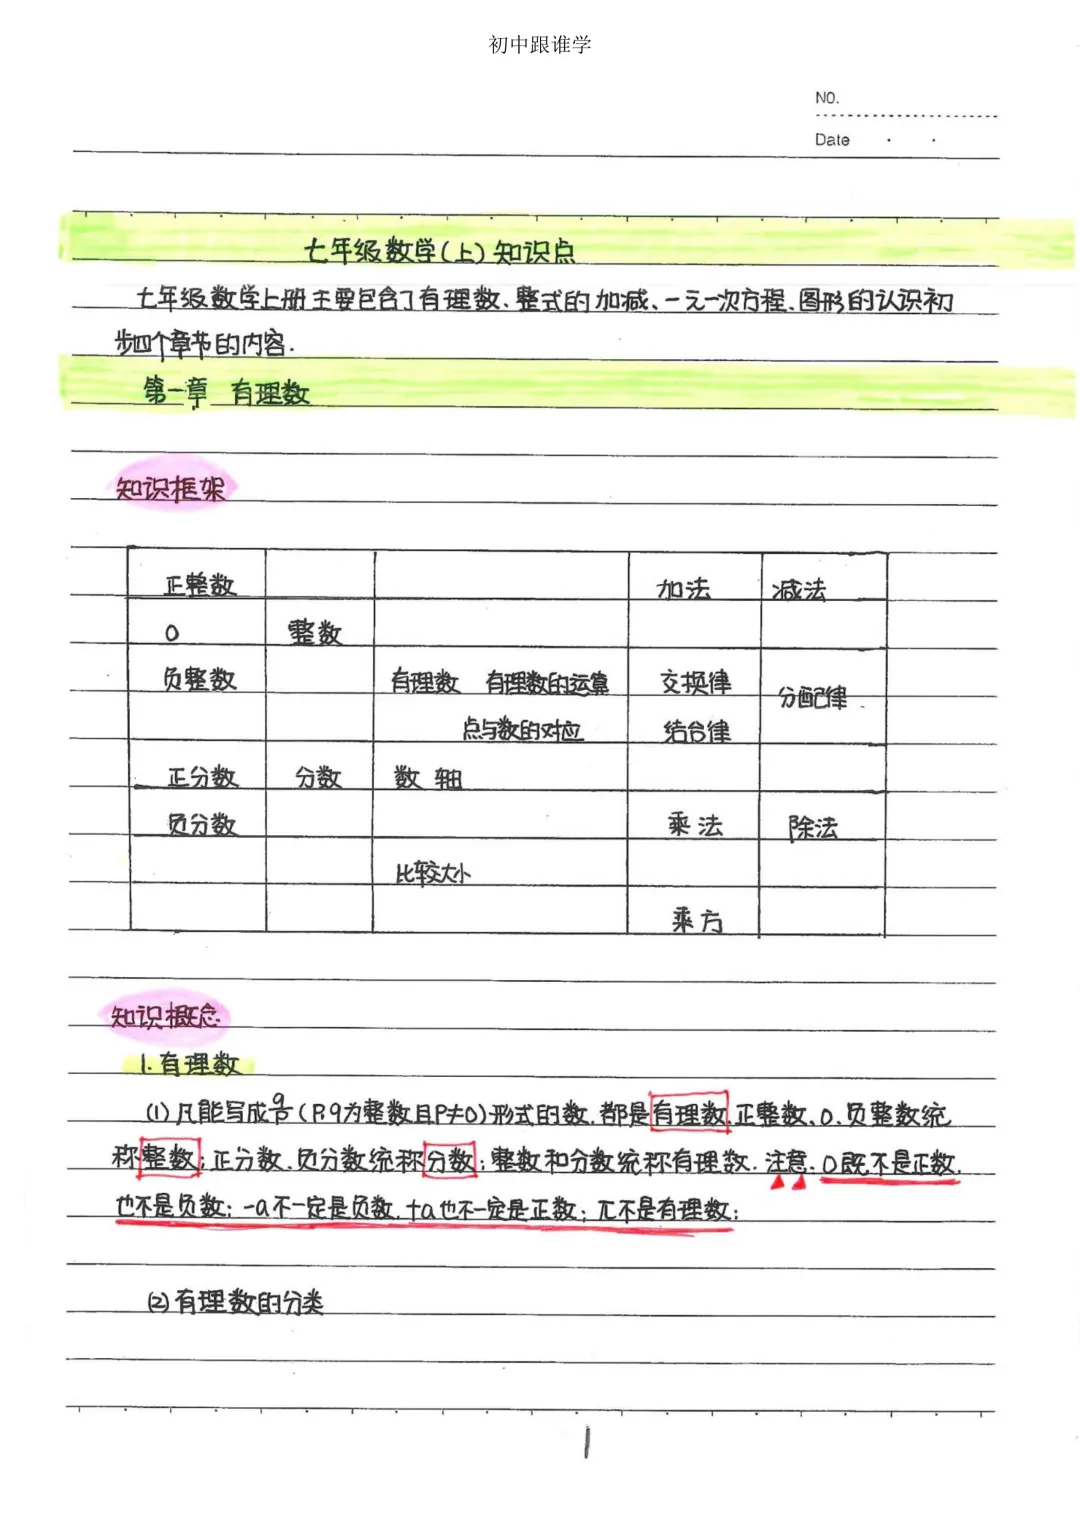 初中跟谁学
NO.
Date
七年级数学(上)知识点
七年级数学上册主要包含了有理数、整式的加减、一元一次方程、图形的认识初
步四个章节的内容.
第一章 有理数
知识框架
正整数 加法 减法
0 整数
负整数 有理数 有理数的运算 交换律 分配律
点与数的对应 结合律
正分数 分数 数轴
负分数 乘法 除法
比较大小
乘方
知识概念
1.有理数
(1)凡能写成 (P.q为整数且P≠0)形式的数.都是有理数.正整数、0、负整数统
称整数;正分数、负分数统称分数;整数和分数统称有理数.注意:0既不是正数,
也不是负数;-a不一定是负数,+a也不一定是正数;π不是有理数;
(2)有理数的分类
1